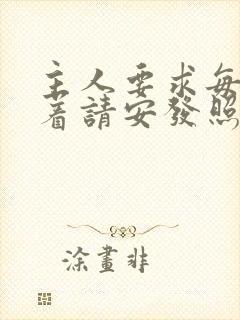 主人要求每
着請安發照
涂畫非